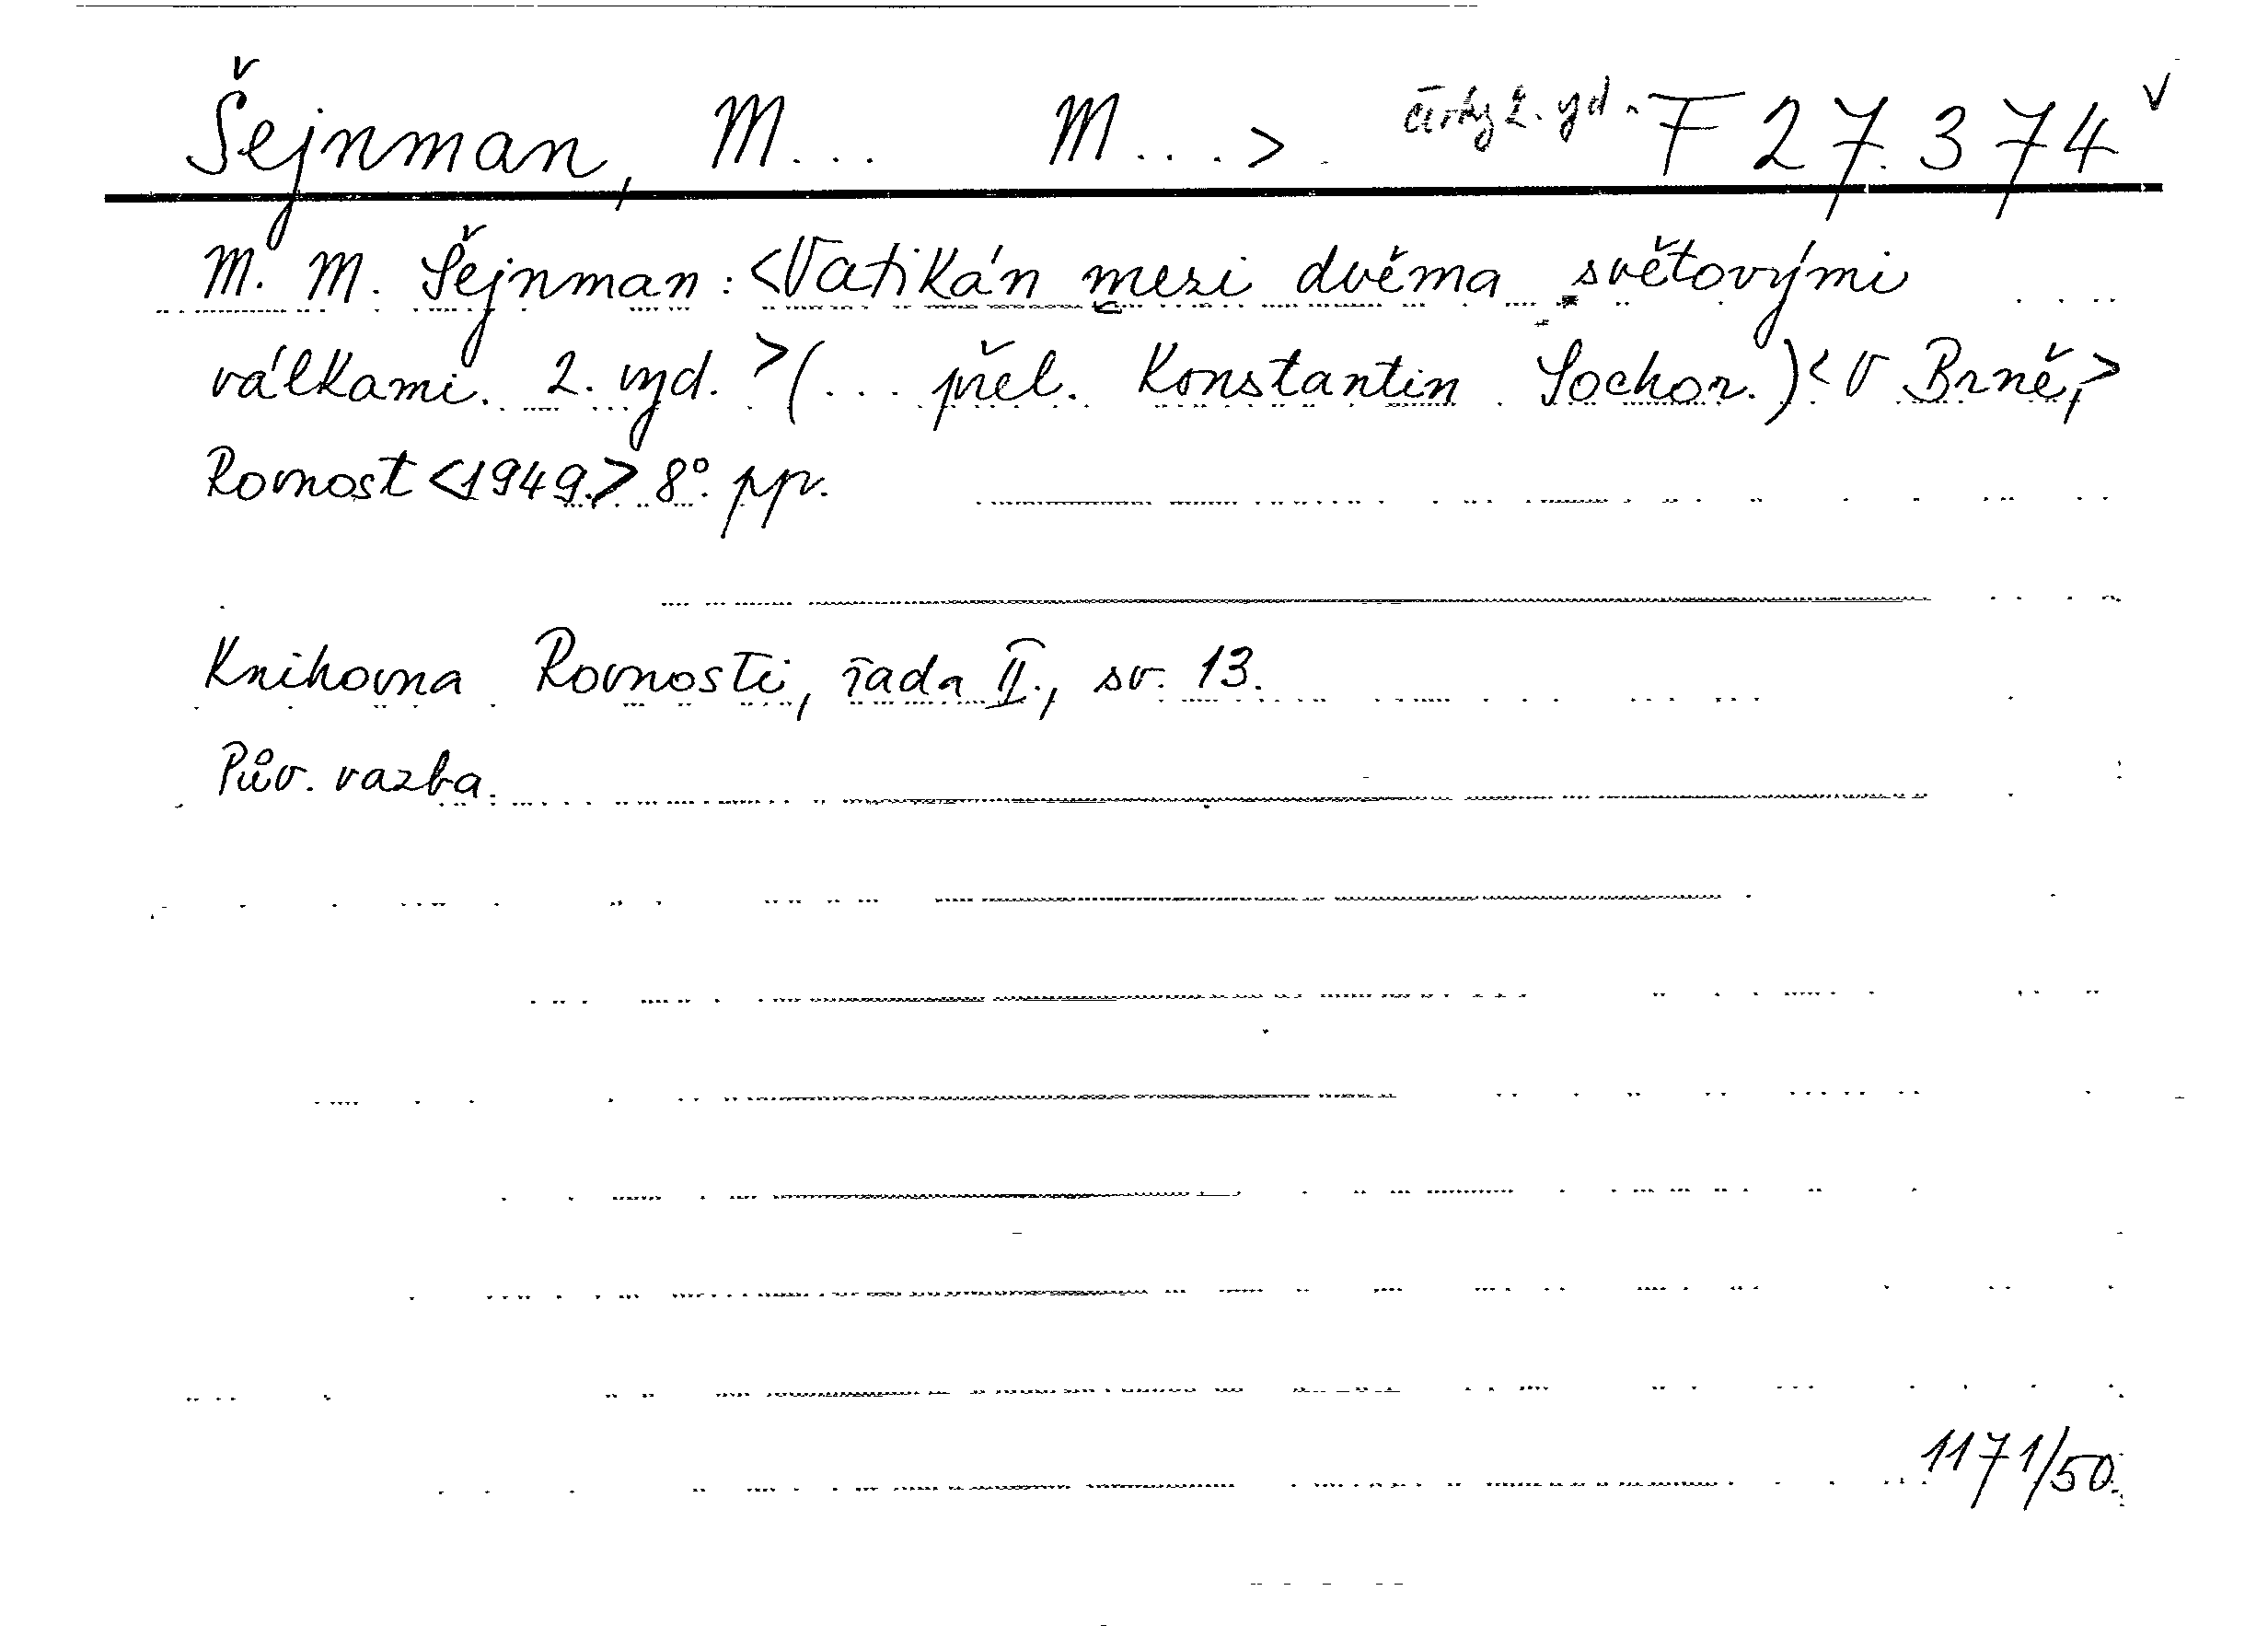 Šejnman, M... M...>. 2. vyd. F 27.374 v
M. M. Šejnman: <Vatikán mezi dvěma světovými
válkami. 2. vyd.>(... přel. Konstantin Sochor.)<V Brně,>
Rovnost <1949.> 8°. pp.
Knihovna Rovnosti, řada II., sv. 13.
Pův. vazba.
1171/50.